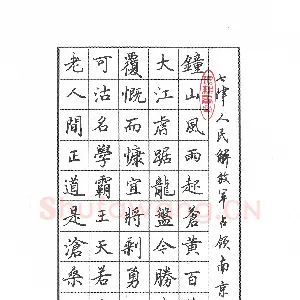 七律人民解放軍占領南京
鐘山風雨起蒼黃百
大江虎踞龍盤今勝
覆慨而慷宜將剩勇
可沽名學霸王天若
老人間正道是滄桑